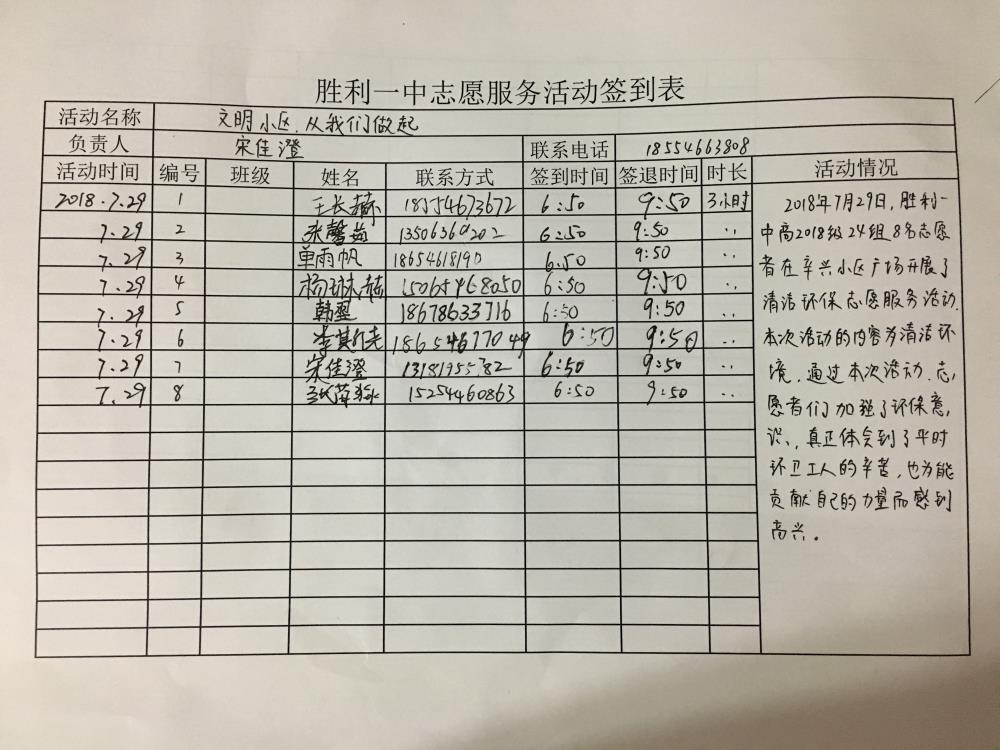 胜利一中志愿服务活动签到表
活动名称 文明小区，从我们做起
负责人 宋佳澄 联系电话 18554663808
活动时间 编号 班级 姓名 联系方式 签到时间 签退时间 时长 活动情况
2018.7.29 1 王长赫 18554673672 6:50 9:50 3小时
7.29 2 张馨茹 13506360202 6:50 9:50 ··
7.29 3 单雨帆 18654618190 6:50 9:50 ··
7.29 4 杨琳赫 15065468050 6:50 9:50 ··
7.29 5 韩翌 18678633716 6:50 9:50 ··
7.29 6 李其 18654677049 6:50 9:50 ··
7.29 7 宋佳澄 13181955782 6:50 9:50 ··
7.29 8 15254460863 6:50 9:50 ··
2018年7月29日，胜利一
中高2018级24组8名志愿
者在辛兴小区广场开展了
清洁环保志愿服务活动.
本次活动的内容为清洁环
境，通过本次活动，志
愿者们加强了环保意
识、真正体会到了平时
环卫工人的辛苦，也为能
贡献自己的力量而感到
高兴。